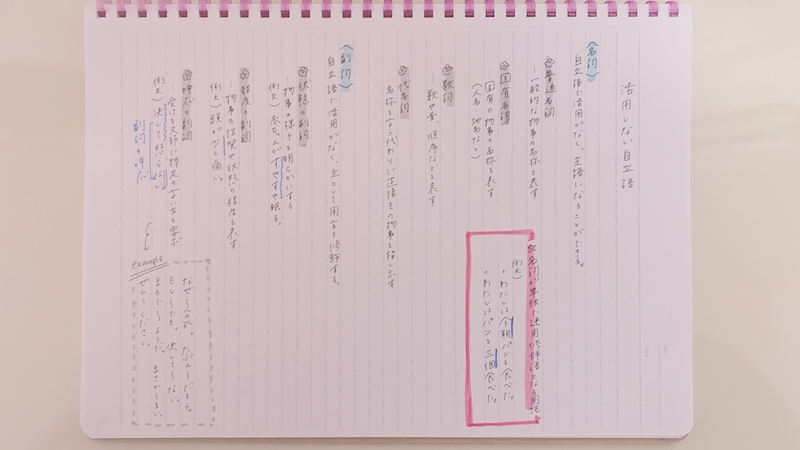 活用しない自立語
〈名詞〉
自立語で活用がなく、主語になることができる。
◎普通名詞
…一般的な物事の名称を表す
◎固有名詞
…固有の物事の名称を表す
（人名、地名など）
◎数詞
…数や量、順序などを表す
◎代名詞
…名称を言う代わりに直接その物事を指し示す
名詞が単独で連用修飾語となる場合
例文）
・わたしは今朝パンを食べた。
・わたしはパンを三個食べた。
〈副詞〉
自立語で活用がなく、主として用言を修飾する。
◎状態の副詞
…物事の様子を明らかにする
例文）赤ちゃんがすやすや眠る。
◎程度の副詞
…物事の性質や状態の程度を表す
例文）頭が少し痛い。
◎呼応の副詞
…受ける文節に特定の言い方を要求
例文）決して怒らない
副詞の呼応
example
なぜ〜のか。たぶん〜だろう。
もし〜ても。決して〜ない。
まるで〜ようだ。まさか〜まい。
ぜひ〜ください。